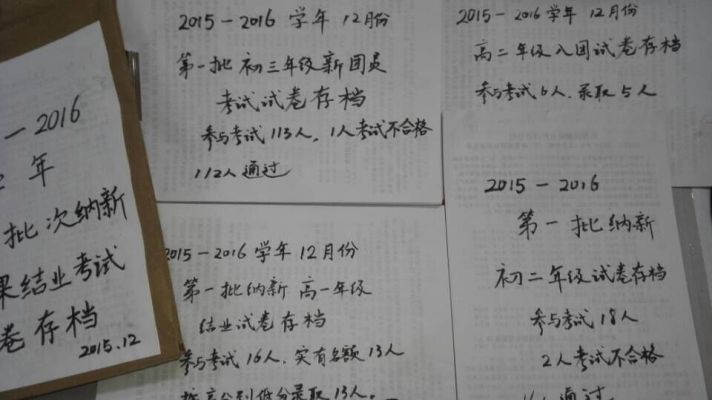 —2016
年
批次纳新
果结业考试
卷存档
2015.12
2015—2016 学年 12月份
第一批 初三年级新团员
考试试卷存档
参与考试113人，1人考试不合格
112人通过
2015—2016学年 12月份
高二年级入团试卷存档
参与考试6人.录取5人
2015—2016学年12月份
第一批纳新 高一年级
结业试卷存档
参与考试16人，实有名额13人
按高分到低分录取13人。
2015—2016
第一批纳新
初二年级试卷存档
参与考试18人
2人考试不合格
人通过